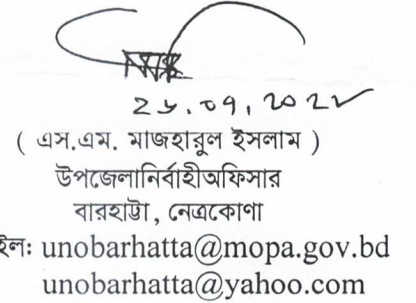 ( এস.এম. মাজহারুল ইসলাম )
উপজেলানির্বাহীঅফিসার
বারহাট্টা, নেত্রকোণা
ইলঃ unobarhatta@mopa.gov.bd
unobarhatta@yahoo.com